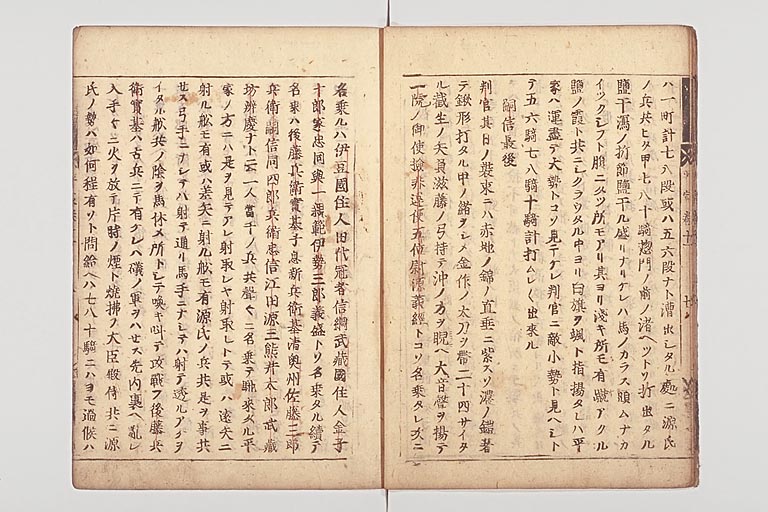 ハ一町計七八段或ハ五六段ナト漕出シタル處ニ源氏
ノ兵共ヒタ甲七八十騎惣門ノ前ノ渚ヘツトリ打出タル
鹽干潟ノ折節鹽干ル盛リナリケレハ馬ノカラス頭ムナカ
イツクシフト腹ニタツ所モアリ其ヨリ淺キ所モ有蹴アクル
鹽ノ霞ト共ニシクラウタル中ヨリ白旗ヲ颯ト指揚タレハ平
家ハ運盡テ大勢トコソ見テケレ判官ニ敵小勢ト見ヘシト
テ五六騎七八騎十騎計打ムレ〱出來ル
嗣信最後
判官其日ノ裝束ニハ赤地ノ錦ノ直垂ニ紫スソ濃ノ鎧著
テ鍬形打タル甲ノ緒ヲシメ金作ノ太刀ヲ帶二十四サイタ
ル截生ノ矢負滋藤ノ弓持テ沖ノ方ヲ睨ヘ大音聲ヲ揚テ
一院ノ御使撿非違使五位尉源義經トコソ名乘タレ次ニ
名乘ルハ伊豆國住人田代冠者信綱武藏國住人金子
十郎家忠同與一親範伊勢三郎義盛トソ名乘タル續テ
名乘ハ後藤兵衛實基子息新兵衛基清奥州佐藤三郎
兵衛嗣信同四郎兵衛忠信江田源三熊井太郎武藏
坊辨慶ナト云一人當千ノ兵共聲〱ニ名乘テ馳來タル平
家ノ方ニハ是ヲ見テアレ射取レヤ射取レトテ或ハ遠矢ニ
射ル舩モ有或ハ差矢ニ射ル舩モ有源氏ノ兵共是ヲ事共
セス弓手ニナシテハ射テ通リ馬手ニナシテハ射テ透ルアケヲ
イタル舩共ノ陰ヲ馬休メ所トシテ喚キ叫テ攻戰フ後藤兵
衛實基ハ古兵ニテ有ケレハ磯ノ軍ヲハセス先内裏ヘ亂レ
入手〱ニ火ヲ放テ片時ノ煙ト燒拂フ大臣殿侍共ニ源
氏ノ勢ハ如何程有ソト問給ヘハ七八十騎ニハヨモ過候ハ